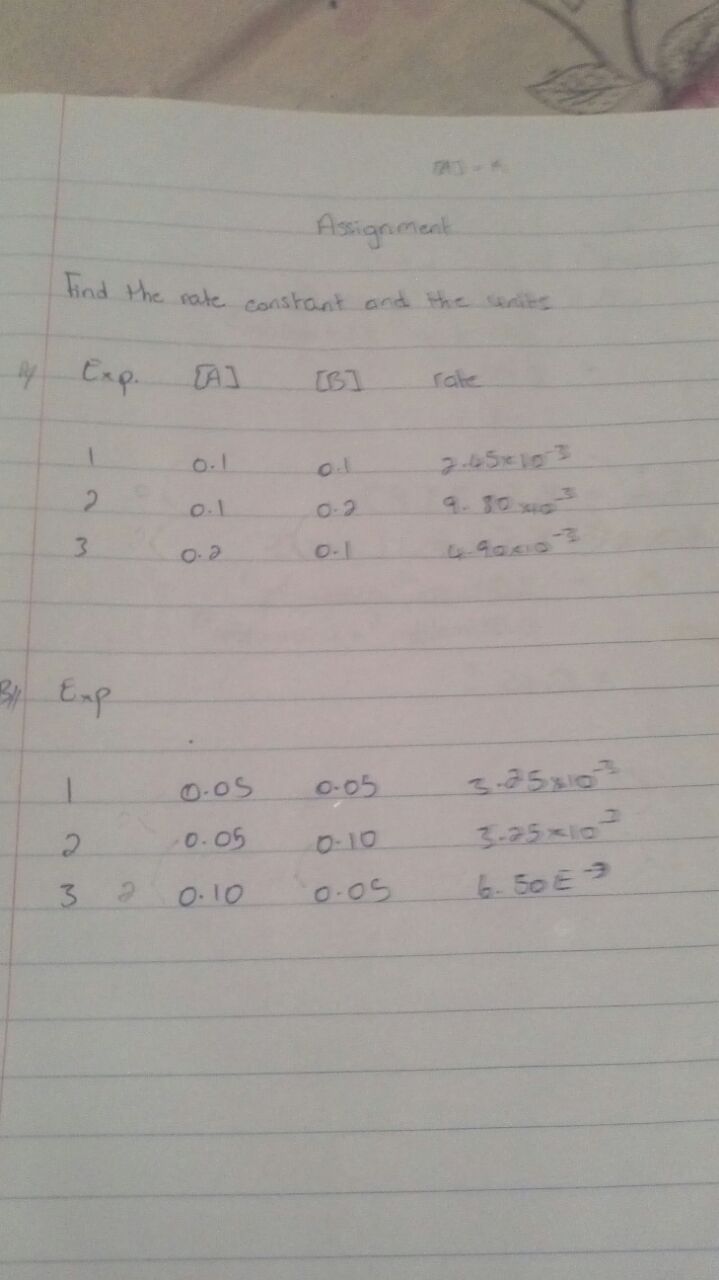 Assignment
Find the rate constant and the units
A// Exp. [A] [B] rate
1 0.1 0.1 2.45x10⁻³
2 0.1 0.2 9.80x10⁻³
3 0.2 0.1 4.90x10⁻³
B// Exp
1 0.05 0.05 3.25x10⁻³
2 0.05 0.10 3.25x10
3 2 0.10 0.05 6.50E⁻³